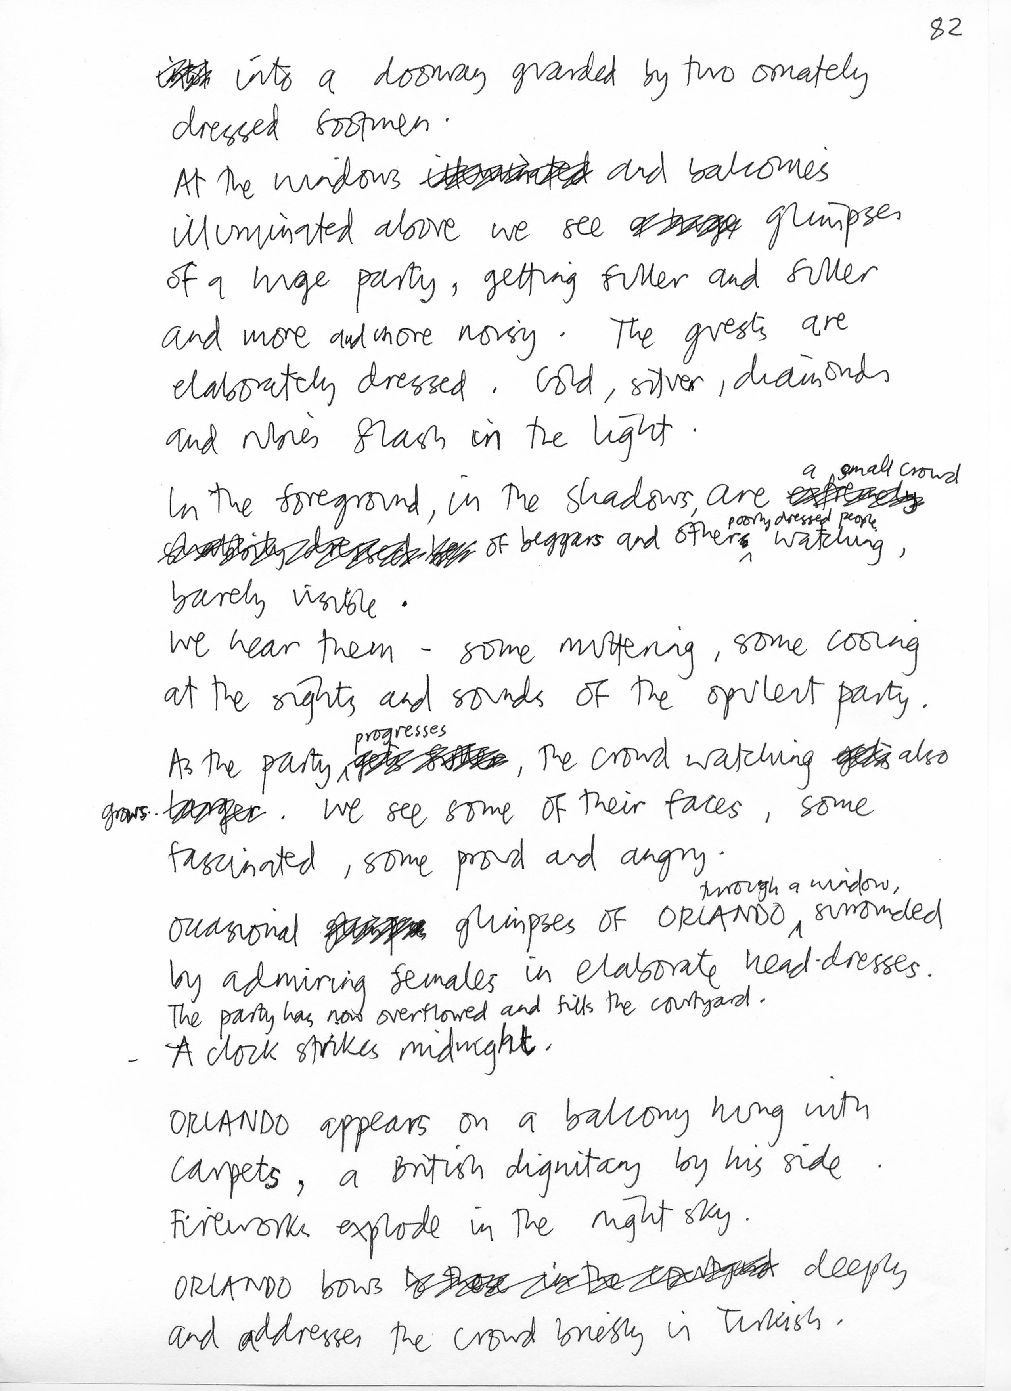 82
into a doorway guarded by two ornately
dressed footmen.
At the windows illuminated and balconies
illuminated above we see glimpses
of a huge party, getting fuller and fuller
and more and more noisy. The guests are
elaborately dressed. Gold, silver, diamonds
and rubies flash in the light.
a small crowd
In the foreground, in the shadows, are extremely
poorly dressed people
shabbily dressed of beggars and others watching,
barely visible.
We hear them - some muttering, some cooing
at the sights and sounds of the opulent party.
progresses
As the party gets fuller, the crowd watching gets also
grows. larger. We see some of their faces, some
fascinated, some proud and angry.
through a window,
Occasional glimpses of ORLANDO, surrounded
by admiring females in elaborate head-dresses.
The party has now overflowed and fills the courtyard.
- A clock strikes midnight.
ORLANDO appears on a balcony hung with
carpets, a British dignitary by his side.
Fireworks explode in the night sky.
ORLANDO bows to those in the courtyard deeply
and addresses the crowd briefly in Turkish.